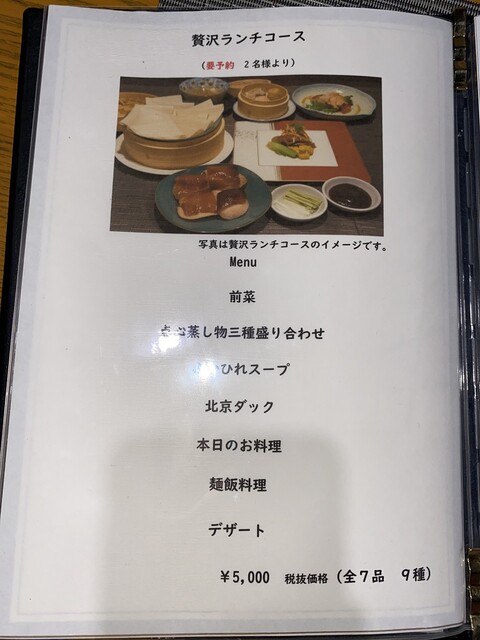 贅沢ランチコース
（要予約　２名様より）
写真は贅沢ランチコースのイメージです。
Menu
前菜
点心蒸し物三種盛り合わせ
ふかひれスープ
北京ダック
本日のお料理
麺飯料理
デザート
￥5,000　税抜価格（全７品　９種）